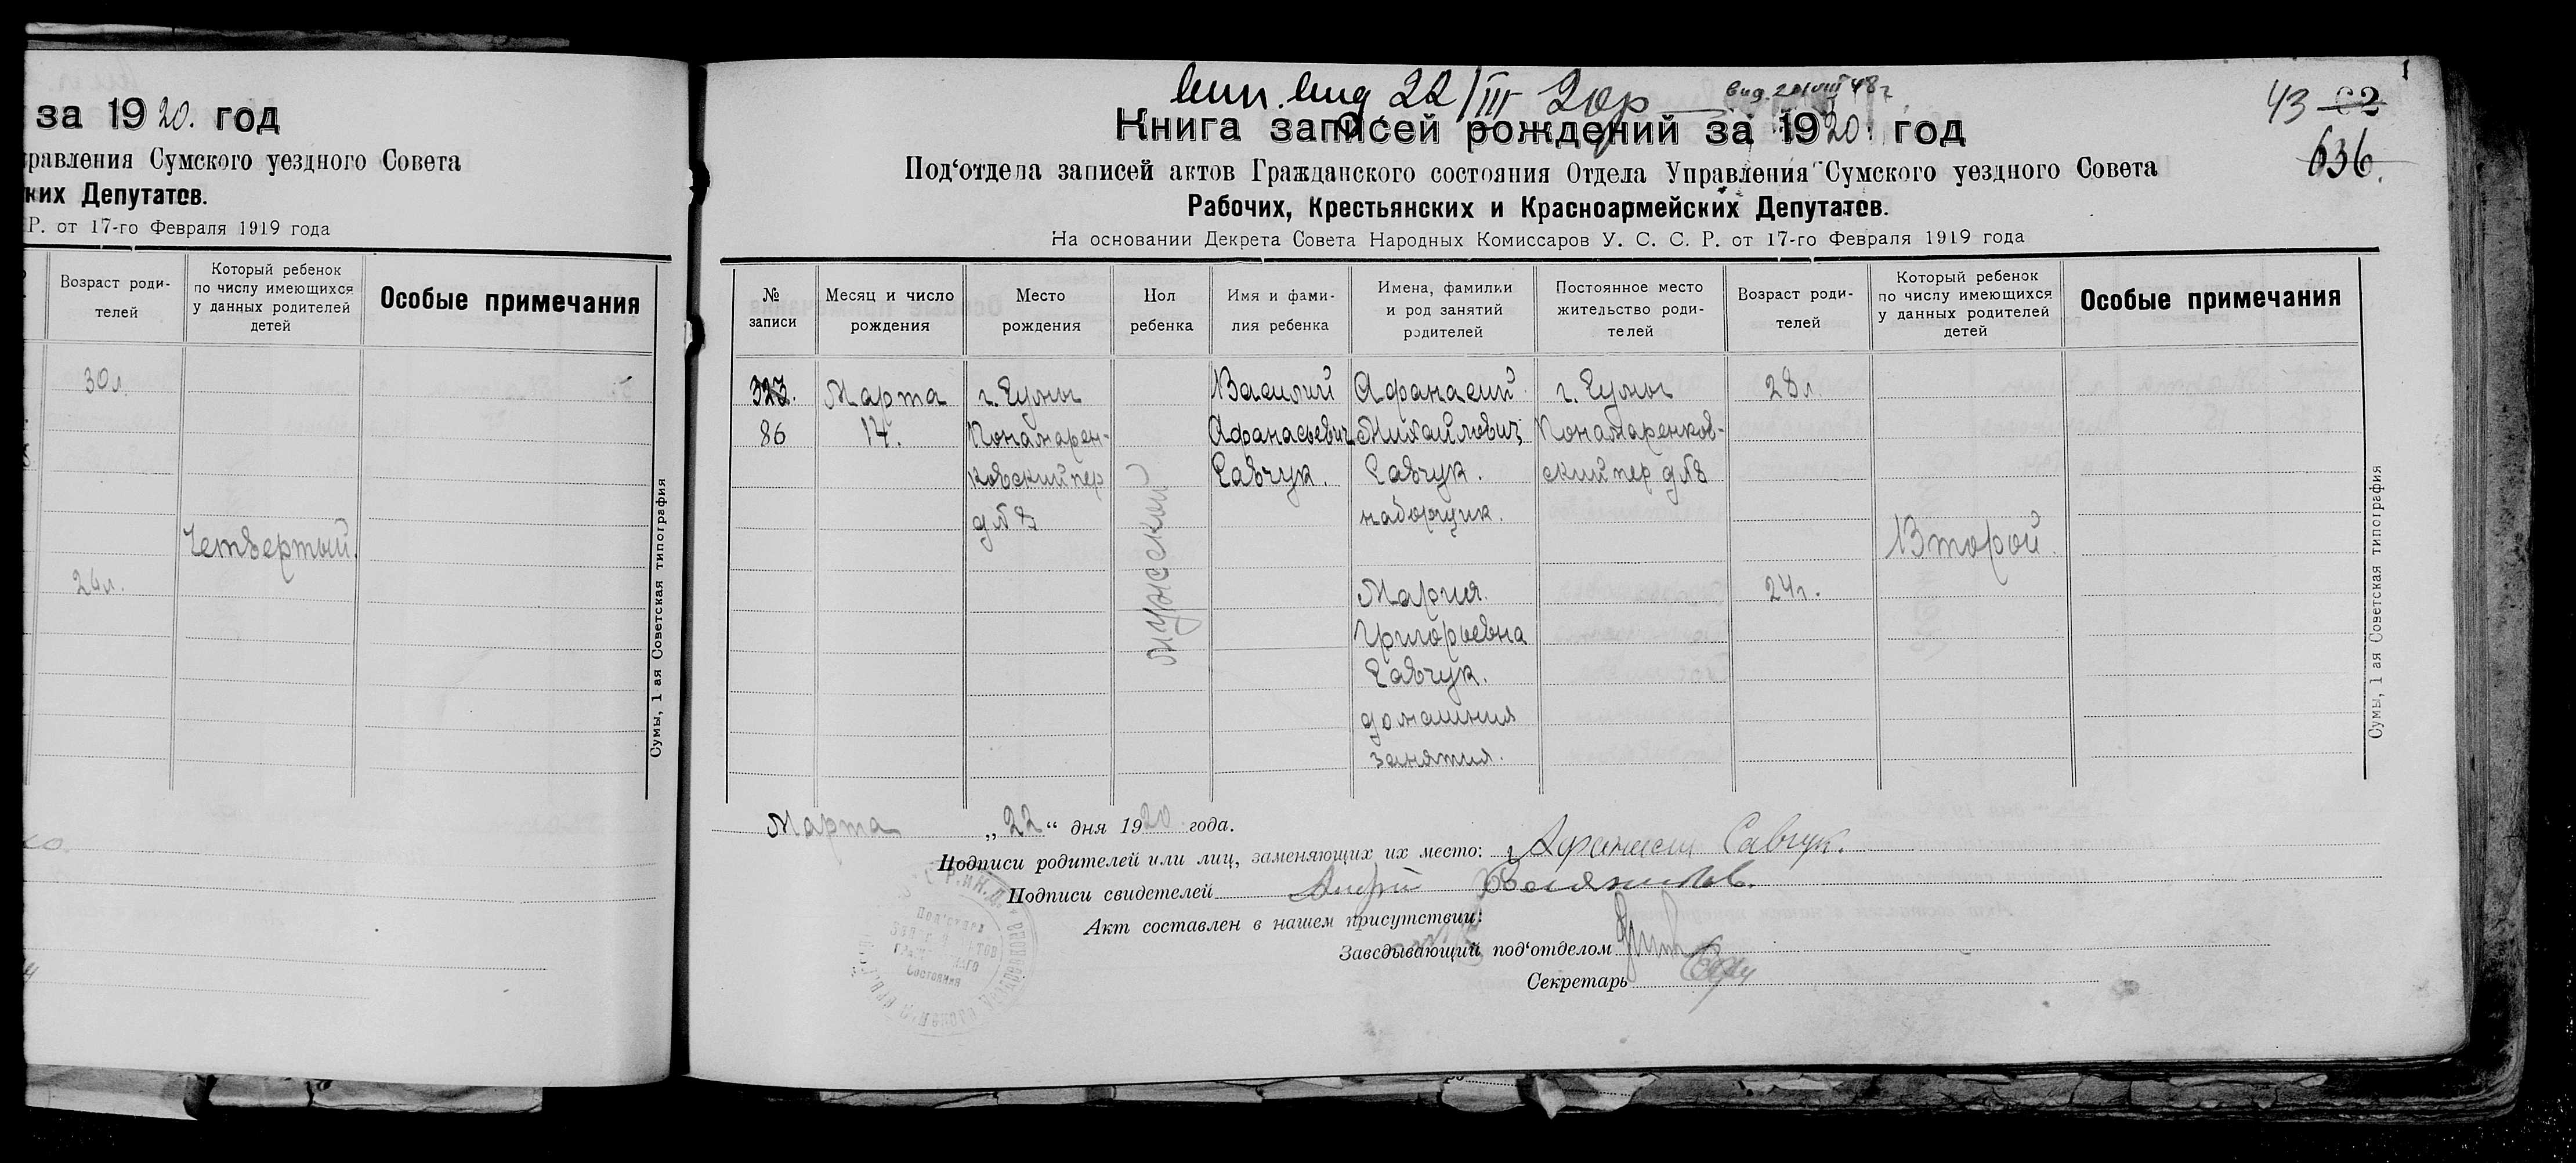 за 1920. год
правления Сумского уездного Совета
ких Депутатов.
Р. от 17-го Февраля 1919 года
Возраст роди-
телей
Который ребенок
по числу имеющихся
у данных родителей
детей
Особые примечания
30 л.
Четвертый.
26 л.
Сумы, 1 ая Советская типография
22/III 20р
вид. 48 г.
43 62
636.
1
Книга записей рождений за 1920 год
Под‘отдела записей актов Гражданского состояния Отдела Управления Сумского уездного Совета
Рабочих, Крестьянских и Красноармейских Депутатов.
На основании Декрета Совета Народных Комиссаров У. С. С. Р. от 17-го Февраля 1919 года
№
записи
Месяц и число
рождения
Место
рождения
Пол
ребенка
Имя и фами-
лия ребенка
Имена, фамилии
и род занятий
родителей
Постоянное место
жительство роди-
телей
Возраст роди-
телей
Который ребенок
по числу имеющихся
у данных родителей
детей
Особые примечания
323.
86
Марта
14.
г. Сумы
Понамарен-
ковский пер
д № 8
мужской
Василий
Афанасьевич
Савчук.
Афанасий
Михайлович
Савчук.
наборщик.
Мария
Григорьевна
Савчук.
домашния
занятия.
г. Сумы
Понамаренков-
ский пер д № 8
28 л.
24 г.
Второй.
Сумы, 1 ая Советская типография
Марта „22“ дня 1920 года.
Подписи родителей или лиц, заменяющих их место: Афанасий Савчук.
Подписи свидетелей Андрей
Акт составлен в нашем присутствии:
Заведывающий под‘отделом
Секретарь
Под‘отдел
Записи Актов
Гражданского
Состояния